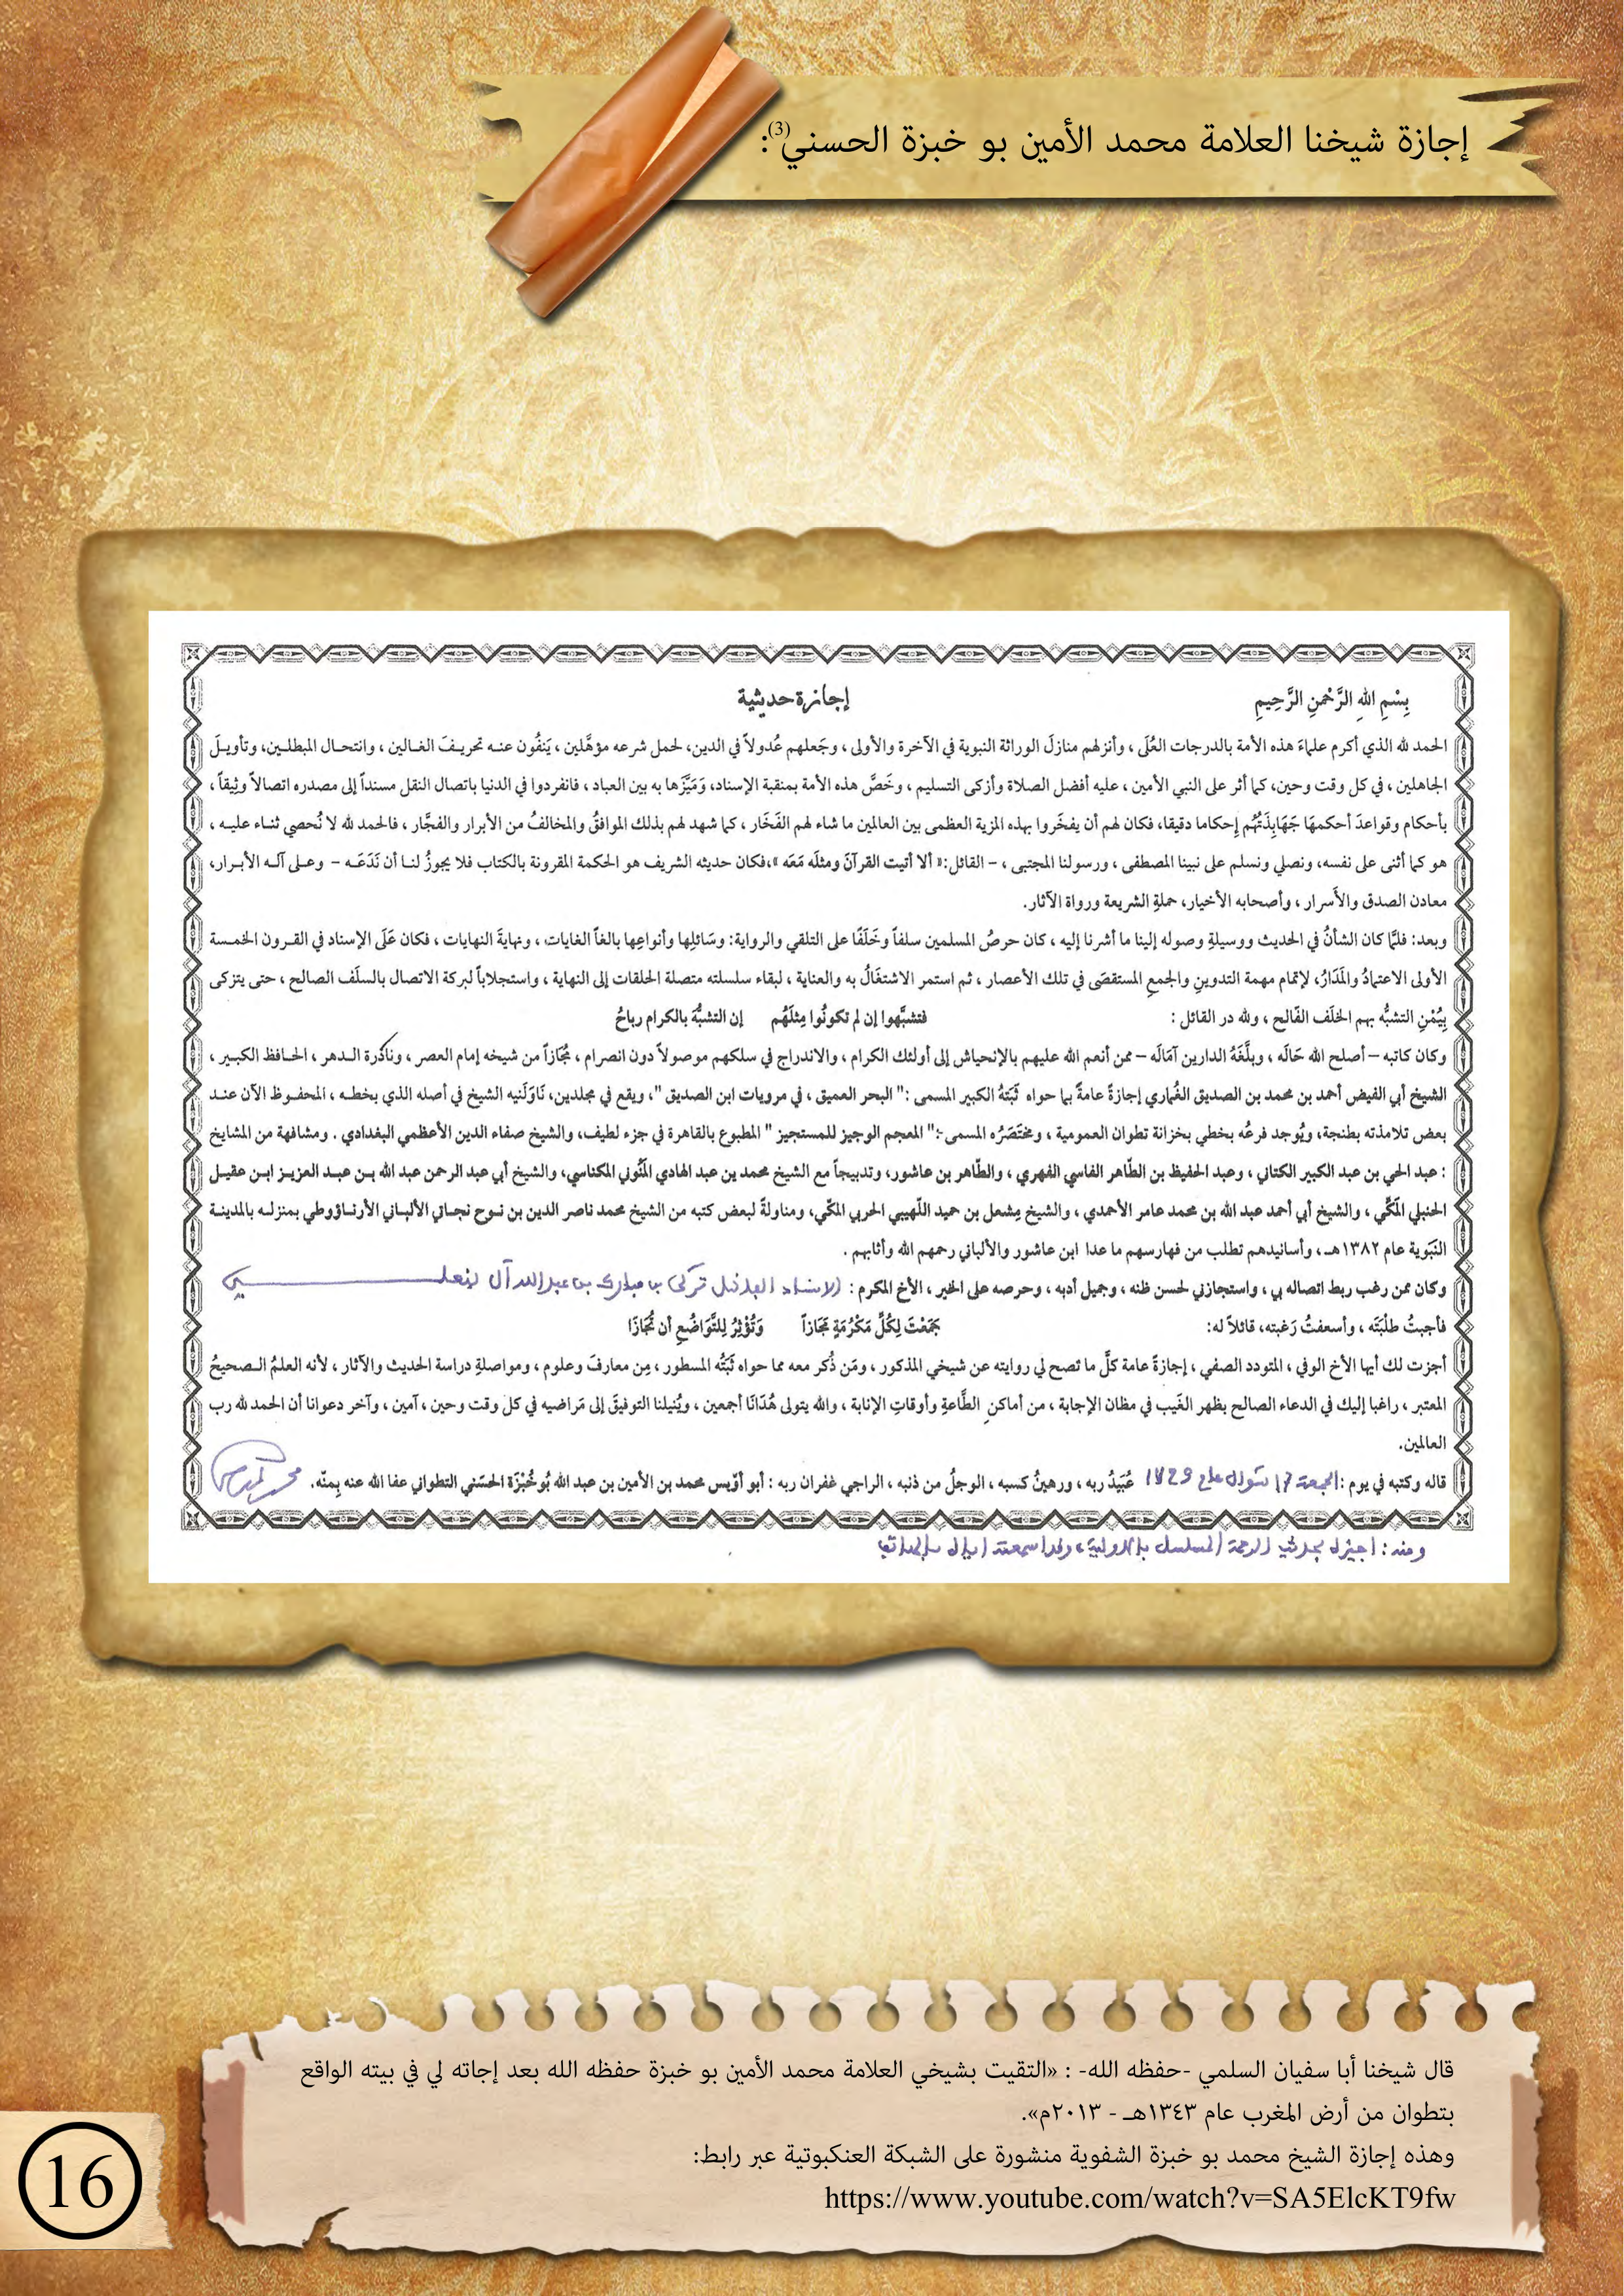 إجازة شيخنا العلامة محمد الأمين بو خبزة الحسني(3):
بِسْمِ اللهِ الرَّحْمنِ الرَّحِيمِ
إجازة حديثية
الحمد لله الذي أكرم علماءَ هذه الأمة بالدرجات العُلَى ، وأنزلهم منازلَ الوراثة النبوية في الآخرة والأولى ، وجَعلهم عُدولاً في الدين، لحمل شرعه مؤهَّلين ، يَنفُون عنه تحريفَ الغالين ، وانتحال المبطلين، وتأويل
الجاهلين ، في كل وقت وحين، كما أثر على النبي الأمين ، عليه أفضل الصلاة وأزكى التسليم ، وخَصَّ هذه الأمة بمنقبة الإسناد، وَمَيَّزَها به بين العباد ، فانفردوا في الدنيا باتصال النقل مسنداً إلى مصدره اتصالاً وثِيقاً ،
بأحكام وقواعدَ أحكمهَا جَهَابِذَتُهُم إحكاما دقيقا، فكان لهم أن يفخَروا بهذه المزية العظمى بين العالمين ما شاء لهم الفَخَار ، كما شهد لهم بذلك الموافقُ والمخالفُ من الأبرار والفجَّار ، فالحمد لله لا نُحصي ثناء عليه ،
هو كما أثنى على نفسه، ونصلي ونسلم على نبينا المصطفى ، ورسولنا المجتبى ، – القائل:« ألا أتيت القرآنَ ومثلَه مَعَه »،فكان حديثه الشريف هو الحكمة المقرونة بالكتاب فلا يجوزُ لنا أن نَدَعَه – وعلى آله الأبرار،
معادن الصدق والأَسرار ، وأصحابه الأخيار، حملةِ الشريعة ورواة الآثار.
وبعد: فلمَّا كان الشأنُ في الحديث ووسيلةِ وصوله إلينا ما أشرنا إليه ، كان حرصُ المسلمين سلفاً وخَلَفًا على التلقي والرواية: وسَائلِها وأنواعِها بالغاً الغايات ، ونهايةَ النهايات ، فكان عَلَى الإسناد في القرون الخمسة
الأولى الاعتمادُ والمَدَارُ، لإتمام مهمة التدوينِ والجمعِ المستقصَى في تلك الأعصار ، ثم استمر الاشتغَالُ به والعناية ، لبقاء سلسلته متصلة الحلقات إلى النهاية ، واستجلاباً لبركة الاتصال بالسلَف الصالح ، حتى يتزكى
بِيُمْنِ التشبُّه بهم الخلَف الفَالح ، ولله در القائل : فتشبَّهوا إن لم تكونُوا مِثلَهُم إن التشبُّهَ بالكرام رباحُ
وكان كاتبه – أصلح الله حَالَه ، وبلَّغَهُ الدارين آمَالَه – ممن أنعم الله عليهم بالإنحياش إلى أولئك الكرام ، والاندراج في سلكهم موصولاً دون انصرام ، مُجَازاً من شيخه إمام العصر ، ونادرة الدهر ، الحافظ الكبير ،
الشيخ أبي الفيض أحمد بن محمد بن الصديق الغُماري إجازةً عامةً بما حواه ثَبَتَهُ الكبير المسمى :" البحر العميق ، في مرويات ابن الصديق "، ويقع في مجلدين، نَاوَلَنيه الشيخ في أصله الذي بخطه ، المحفوظ الآن عند
بعض تلامذته بطنجة، ويُوجد فرعُه بخطي بخزانة تطوان العمومية ، ومختَصَرُه المسمى :" المعجم الوجيز للمستجيز " المطبوع بالقاهرة في جزء لطيف، والشيخ صفاء الدين الأعظمي البغدادي . ومشافهة من المشايخ
: عبد الحي بن عبد الكبير الكتاني ، وعبد الحفيظ بن الطَّاهر الفاسي الفهري ، والطَّاهر بن عاشور، وتدبيجاً مع الشيخ محمد بن عبد الهادي المَنُّوني المكناسي، والشيخ أبي عبد الرحمن عبد الله بن عبد العزيز ابن عقيل
الحنبلي المَكِّي ، والشيخ أبي أحمد عبد الله بن محمد عامر الأحمدي ، والشيخ مِشعل بن حميد اللّهيبي الحربي المكِّي، ومناولةً لبعض كتبه من الشيخ محمد ناصر الدين بن نوح نجاتي الألباني الأرناؤوطي بمنزله بالمدينة
النَبَوية عام ١٣٨٢هـ ، وأسانيدهم تطلب من فهارسهم ما عدا ابن عاشور والألباني رحمهم الله وأثابهم .
وكان ممن رغب ربط اتصاله بي ، واستجازني لحسن ظنه ، وجميل أدبه ، وحرصه على الخير ، الأخ المكرم : الاستاذ الفاضل تركي بن مبارك بن عبد الله آل بنعلي
فأجبتُ طلْبَتَه ، وأسعفتُ رَغبته، قائلاً له: جَمَعْتَ لِكُلِّ مَكْرُمَةٍ مَجَازاً وَتُؤْثِرُ لِلتَّوَاضُعِ أن تُجَازَا
أجزت لك أيها الأخ الوفي ، المتودد الصفي ، إجازةً عامة كلَّ ما تصح لي روايته عن شيخي المذكور ، ومَن ذُكر معه مما حواه ثَبَتُه المسطور ، مِن معارفَ وعلوم ، ومواصلةِ دراسة الحديث والآثار ، لأنه العلمُ الصحيحُ
المعتبر ، راغبا إليك في الدعاء الصالح بظهر الغَيب في مظان الإجابة ، من أماكنِ الطَّاعةِ وأوقاتِ الإنابة ، والله يتولى هُدَانَا أجمعين ، ويُنيلنا التوفيقَ إلى مَراضيه في كل وقت وحين ، آمين ، وآخر دعوانا أن الحمد لله رب
العالمين.
قاله وكتبه في يوم : الجمعة 17 شوال عام 1429 عُبَيدُ ربه ، ورهينُ كسبه ، الوجلُ من ذنبه ، الراجي غفران ربه : أبو أوَيس محمد بن الأمين بن عبد الله بُوخُبْزَة الحسَني التطواني عفا الله عنه بِمنّه.
ومنه : اجيزك بحديث الرحمة المسلسل بالاولية ، وقد اسمعته اياك بالهاتف
قال شيخنا أبا سفيان السلمي -حفظه الله- : «التقيت بشيخي العلامة محمد الأمين بو خبزة حفظه الله بعد إجاته لي في بيته الواقع
بتطوان من أرض المغرب عام ١٣٤٣هـ - ٢٠١٣م».
وهذه إجازة الشيخ محمد بو خبزة الشفوية منشورة على الشبكة العنكبوتية عبر رابط:
https://www.youtube.com/watch?v=SA5ElcKT9fw
16